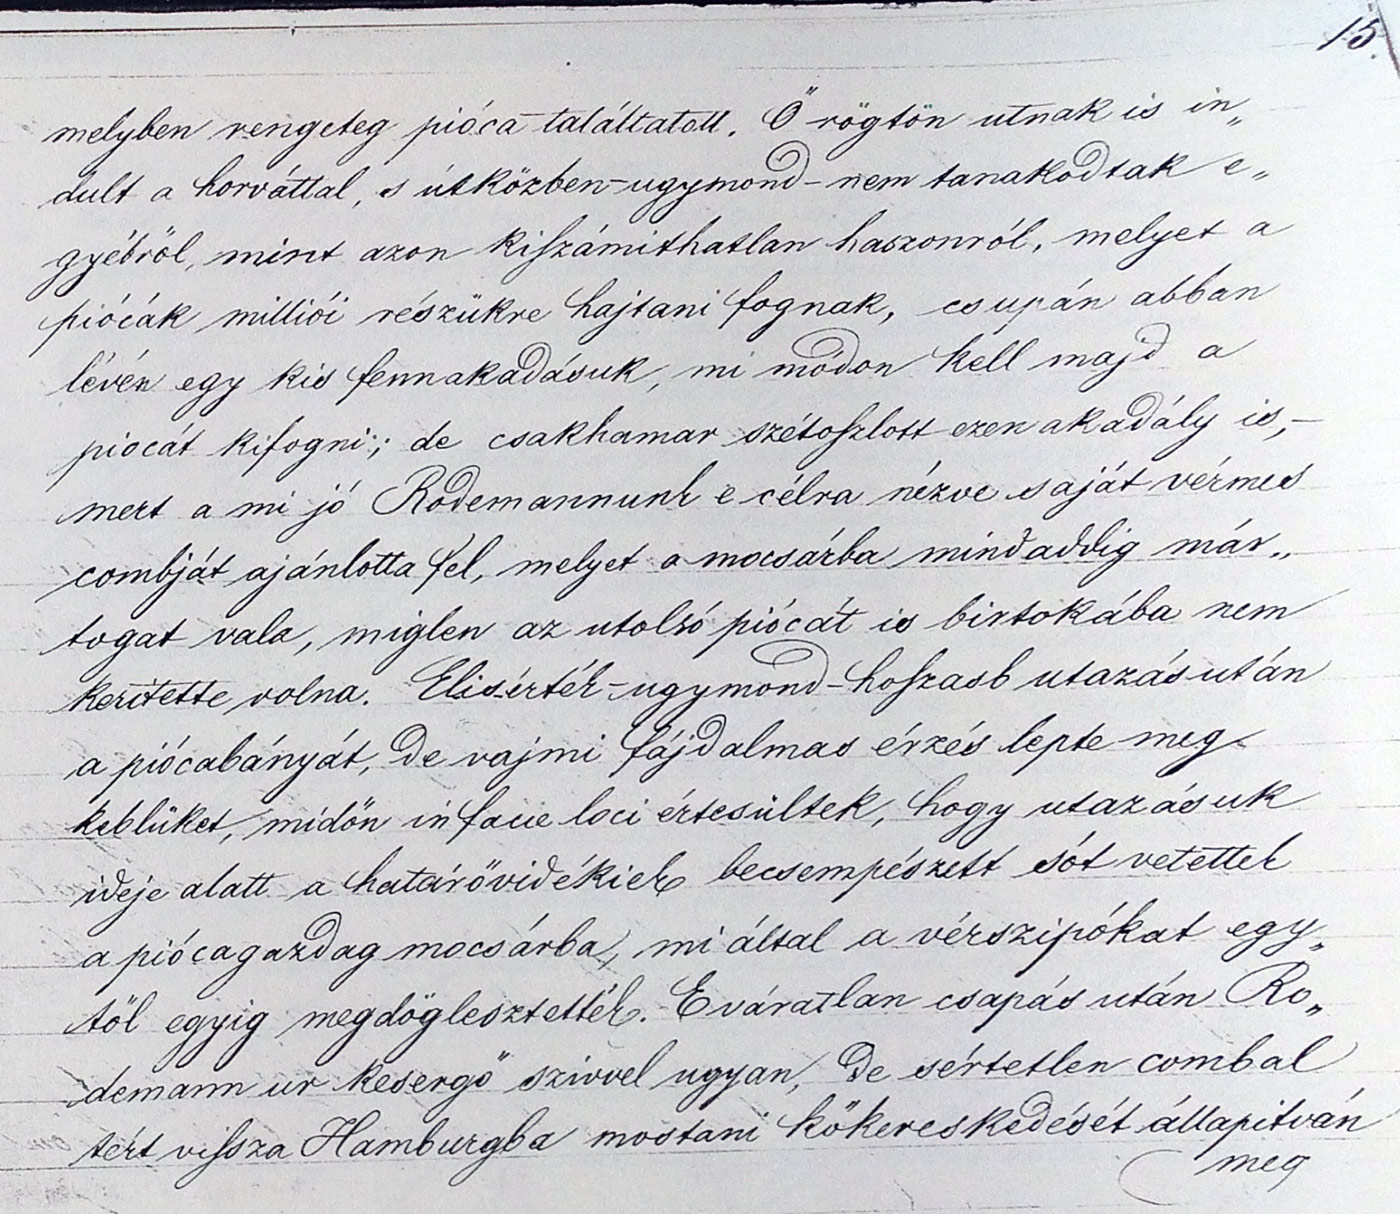 15.
melyben rengeteg pióca találtatott. Ő rögtön utnak is in„
dult a horváttal, s útközben – ugymond – nem tanakodtak e„
gyébröl, mint azon kiszámithatlan haszonról, melyet a
piócák milliói részükre hajtani fognak, csupán abban
lévén egy kis fennakadásuk, mi módon kell majd a
piocát kifogni; de csakhamar szétoszlott ezen akadály is, –
mert a mi jó Rodemannunk e célra nézve saját vérmes
combját ajánlotta fel, melyet a mocsárba mindaddig már„
togat vala, miglen az utolsó piócát is birtokába nem
kerítette volna. Elisérték – ugymond – hoszasb utazás után
a piócabányát, de vajmi fájdalmas érzés lepte meg
keblüket, midőn in facie loci értesültek, hogy utazásuk
ideje alatt a határővidékiek becsempészett sót vetettek
a piócagazdag mocsárba, mi által a vérszipókat egy„
töl egyig megdöglesztették. E váratlan csapás után Ro„
demann ur kesergő szivvel ugyan, de sértetlen combal
tért vissza Hamburgba mostani kőkereskedését állapitván
meg